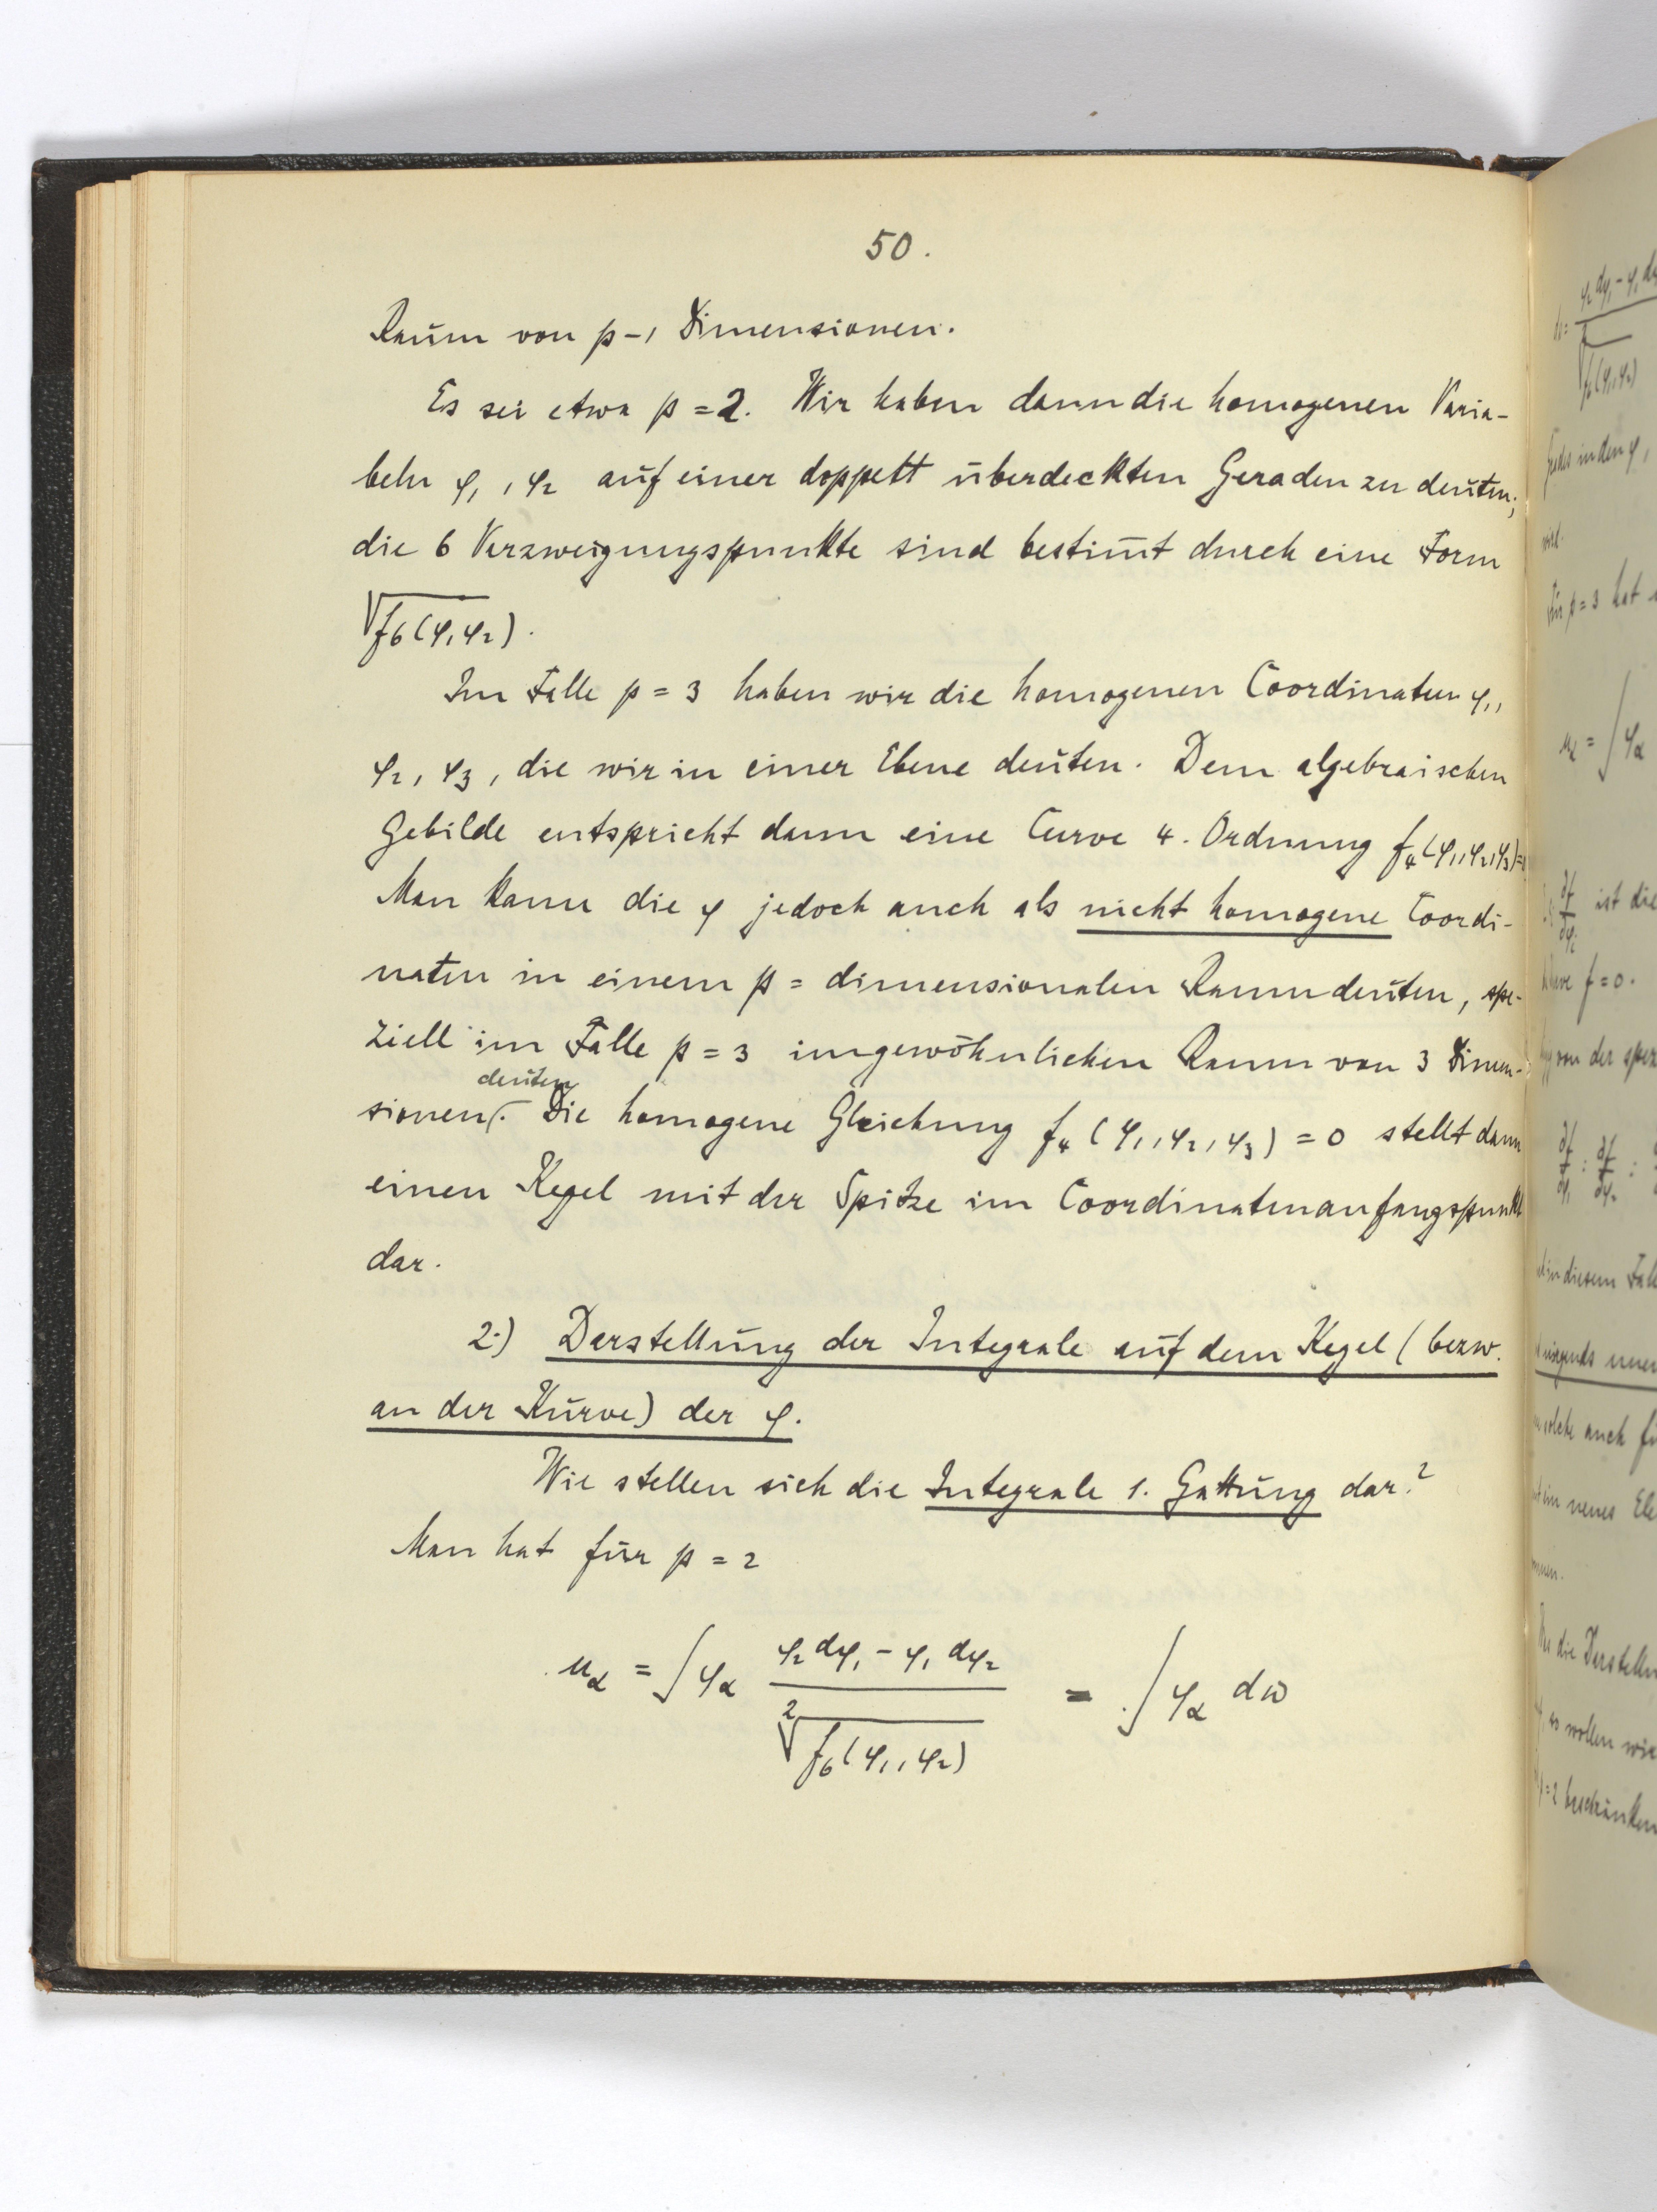 50.
Raum von p-1 Dimensionen.
Es sei etwa p = 2. Wir haben dann die homogenen Varia-
beln φ₁, φ₂ auf einer doppelt überdeckten Geraden zu deuten;
die 6 Verzweigungspunkte sind bestim̄t durch eine Form
√f₆(φ₁φ₂).
Im Falle p = 3 haben wir die homogenen Coordinaten φ₁,
φ₂, φ₃, die wir in einer Ebene deuten. Dem algebraischen
Gebilde entspricht dann eine Curve 4. Ordnung f₄(φ₁,φ₂,φ₃)=0
Man kann die φ jedoch auch als nicht homogene Coordi-
naten in einem p = dimensionalen Raum deuten, spe-
ziell im Falle p = 3 im gewöhnlichen Raum von 3 Dimen-
deuten
sionen. Die homogene Gleichung f₄ (φ₁, φ₂, φ₃) = 0 stellt dann
einen Kegel mit der Spitze im Coordinatenanfangspunkt
dar.
2.) Darstellung der Integrale auf dem Kegel (bezw.
an der Kurve) der φ.
Wie stellen sich die Integrale 1. Gattung dar?
Man hat für p = 2
u_α = ∫ φ_α (φ₂ dφ₁ - φ₁ dφ₂) / ²√f₆(φ₁, φ₂) = ∫ φ_α dω
φ₂dφ₁-φ₁d
√f₆(φ₁φ₂)
in den φ,
Für p = 3 hat
= ∫ φ_α
∂f/∂φᵢ ist die
f = 0.
von der spez
∂f/∂φ₁ : ∂f/∂φ₂ :
in diesem Fal
nirgends unen
solche auch fü
ein neues Ele
die Darstellu
so wollen wir
p = 2 beschränken